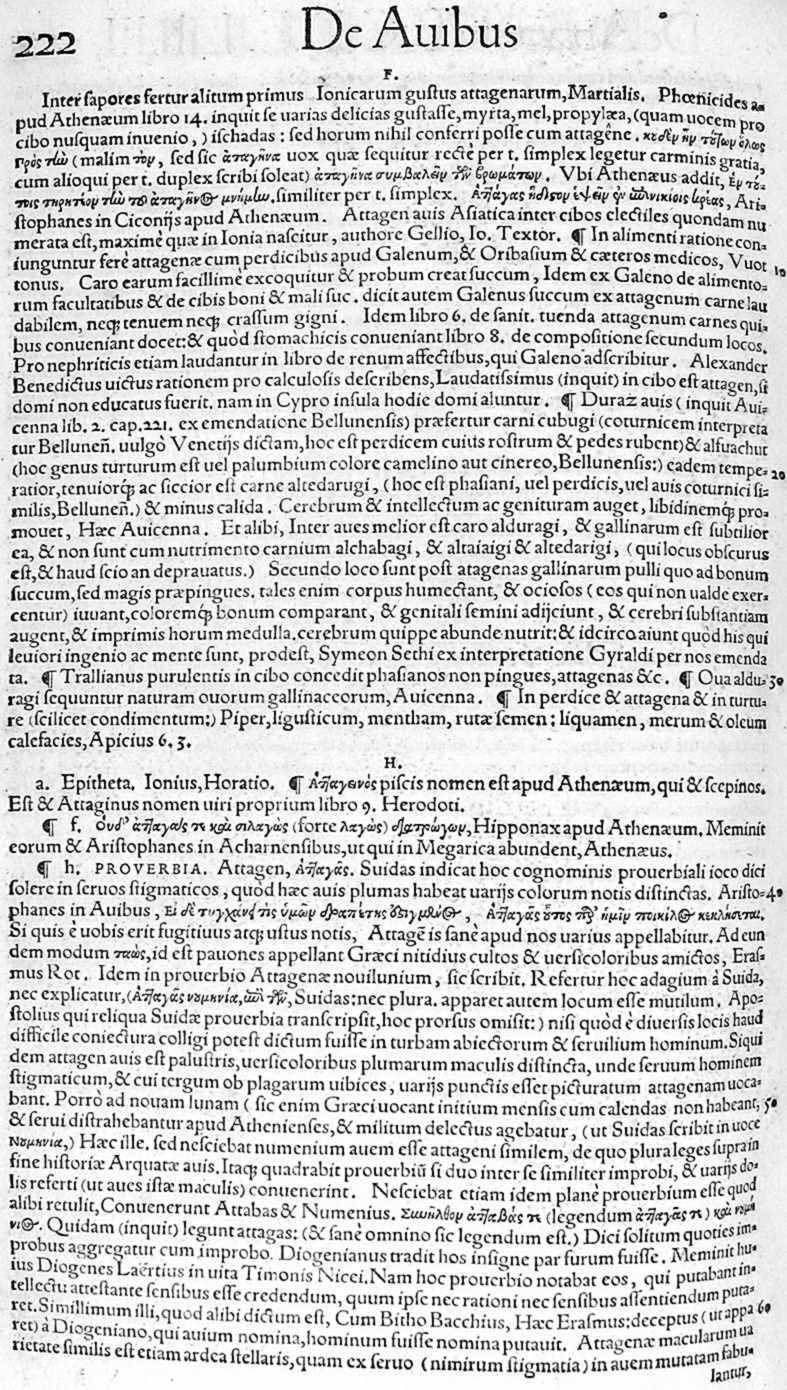 222
De Auibus
F.
Inter sapores fertur alitum primus Ionicarum gustus attagenarum, Martialis. Phœnicides a-
pud Athenæum libro 14. inquit se uarias delicias gustasse, myrta, mel, propylæa, (quam uocem pro
cibo nusquam inuenio,) ischadas: sed horum nihil conferri posse cum attagêne.
(malim τὸν, sed sic ἀταγῆνα uox quæ sequitur rectè per τ. simplex legetur carminis gratia,
cum alioqui per τ. duplex scribi soleat) ἀταγῆνα συμβαλεῖν τῶν βρωμάτων. Vbi Athenæus addit, ἐν τού-
τοις τηρητέον τὴν τοῦ ἀταγῆνος μνήμην. similiter per τ. simplex. Ἀτταγᾶς ἥδιστον ἕψειν ἐν ἐπινικίοις κρέας, Ari-
stophanes in Ciconijs apud Athenæum. Attagen auis Asiatica inter cibos electiles quondam nu
merata est, maximè quæ in Ionia nascitur, authore Gellio, Io. Textor. ¶ In alimenti ratione con-
iunguntur ferè attagenæ cum perdicibus apud Galenum, & Oribasium & cæteros medicos, Vuot
tonus. Caro earum facillimè excoquitur & probum creat succum, Idem ex Galeno de alimento- 10
rum facultatibus & de cibis boni & mali suc. dicit autem Galenus succum ex attagenum carne lau
dabilem, neq; tenuem neq; crassum gigni. Idem libro 6. de sanit. tuenda attagenum carnes qui-
bus conueniant docet: & quòd stomachicis conueniant libro 8. de compositione secundum locos.
Pro nephriticis etiam laudantur in libro de renum affectibus, qui Galeno adscribitur. Alexander
Benedictus uictus rationem pro calculosis describens, Laudatissimus (inquit) in cibo est attagen, si
domi non educatus fuerit. nam in Cypro insula hodie domi aluntur. ¶ Duraz auis (inquit Aui-
cenna lib. 2. cap. 221. ex emendatione Bellunensis) præfertur carni cubugi (coturnicem interpreta
tur Belluneñ. uulgò Venetijs dictam, hoc est perdicem cuius rostrum & pedes rubent) & alfuachut
(hoc genus turturum est uel palumbium colore camelino aut cinereo, Bellunensis:) eadem tempe- 20
ratior, tenuiorq́; ac siccior est carne altedarugi, (hoc est phasiani, uel perdicis, uel auis coturnici si-
milis, Belluneñ.) & minus calida. Cerebrum & intellectum ac genituram auget, libidinemq́; pro-
mouet, Hæc Auicenna. Et alibi, Inter aues melior est caro alduragi, & gallinarum est subtilior
ea, & non sunt cum nutrimento carnium alchabagi, & altaiaigi & altedarigi, (qui locus obscurus
est, & haud scio an deprauatus.) Secundo loco sunt post atagenas gallinarum pulli quo ad bonum
succum, sed magis præpingues. tales enim corpus humectant, & ociosos (eos qui non ualde exer-
centur) iuuant, coloremq́; bonum comparant, & genitali semini adijciunt, & cerebri substantiam
augent, & imprimis horum medulla. cerebrum quippe abunde nutrit: & idcirco aiunt quòd his qui
leuiori ingenio ac mente sunt, prodest, Symeon Sethi ex interpretatione Gyraldi per nos emenda
ta. ¶ Trallianus purulentis in cibo concedit phasianos non pingues, attagenas &c. ¶ Oua aldu- 30
ragi sequuntur naturam ouorum gallinaceorum, Auicenna. ¶ In perdice & attagena & in turtu-
re (scilicet condimentum:) Piper, ligusticum, mentham, rutæ semen: liquamen, merum & oleum
calefacies, Apicius 6. 3.
H.
a. Epitheta. Ionius, Horatio. ¶ Ἀτταγεινὸς piscis nomen est apud Athenæum, qui & scepinos.
Est & Attaginus nomen uiri proprium libro 9. Herodoti.
¶ f. Οὐδ᾽ ἀτταγᾶς τε καὶ σιλαγὼς (forte λαγὼς) διατρώγων, Hipponax apud Athenæum. Meminit
eorum & Aristophanes in Acharnensibus, ut qui in Megarica abundent, Athenæus.
¶ h. PROVERBIA. Attagen, Ἀτταγᾶς. Suidas indicat hoc cognominis prouerbiali ioco dici
solere in seruos stigmaticos, quòd hæc auis plumas habeat uarijs colorum notis distinctas. Aristo- 40
phanes in Auibus, Εἰ δὲ τυγχάνει τις ὑμῶν δραπέτης ἐστιγμένος, Ἀτταγᾶς οὗτος παρ᾽ ἡμῖν ποικίλος κεκλήσεται.
Si quis è uobis erit fugitiuus atq; ustus notis, Attagē is sanè apud nos uarius appellabitur. Ad eun
dem modum ταὼς, id est pauones appellant Græci nitidius cultos & uersicoloribus amictos, Eras-
mus Rot. Idem in prouerbio Attagenæ nouilunium, sic scribit. Refertur hoc adagium à Suida,
nec explicatur, (Ἀτταγᾶς νουμηνία, Suidas: nec plura. apparet autem locum esse mutilum. Apo-
stolius qui reliqua Suidæ prouerbia transcripsit, hoc prorsus omisit:) nisi quòd è diuersis locis haud
difficile coniectura colligi potest dictum fuisse in turbam abiectorum & seruilium hominum. Siqui
dem attagen auis est palustris, uersicoloribus plumarum maculis distincta, unde seruum hominem
stigmaticum, & cui tergum ob plagarum uibices, uarijs punctis esset picturatum attagenam uoca-
bant. Porrò ad nouam lunam (sic enim Græci uocant initium mensis cum calendas non habeant, 50
& serui distrahebantur apud Athenienses, & militum delectus agebatur, (ut Suidas scribit in uoce
Νουμηνία,) Hæc ille. sed nesciebat numenium auem esse attageni similem, de quo plura leges supra in
fine historiæ Arquatæ auis. Itaq; quadrabit prouerbiū si duo inter se similiter improbi, & uarijs do-
lis referti (ut aues istæ maculis) conuenerint. Nesciebat etiam idem planè prouerbium esse quod
alibi retulit, Conuenerunt Attabas & Numenius. Συνῆλθον ἀτταβάς τε (legendum ἀτταγᾶς τε) καὶ νουμή-
νιος. Quidam (inquit) legunt attagas: (& sanè omnino sic legendum est.) Dici solitum quoties im-
probus aggregatur cum improbo. Diogenianus tradit hos insigne par furum fuisse. Meminit hu-
ius Diogenes Laërtius in uita Timonis Nicei. Nam hoc prouerbio notabat eos, qui putabant in-
tellectu attestante sensibus esse credendum, quum ipse nec rationi nec sensibus assentiendum puta-
ret. Simillimum illi, quod alibi dictum est, Cum Bitho Bacchius, Hæc Erasmus: deceptus (ut appa 60
ret) à Diogeniano, qui auium nomina, hominum fuisse nomina putauit. Attagenæ macularum ua
rietate similis est etiam ardea stellaris, quam ex seruo (nimirum stigmatia) in auem mutatam fabu-
lantur,